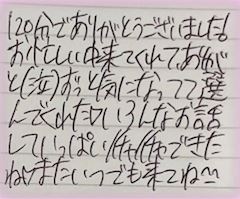 120分でありがとうございました!
お忙しい中来てくれてありが
と(泣)ずっと気になってて選
んでくれたたていろんなお話
していっぱいイチャイチャできた
ねっまたいつでも来てね^^